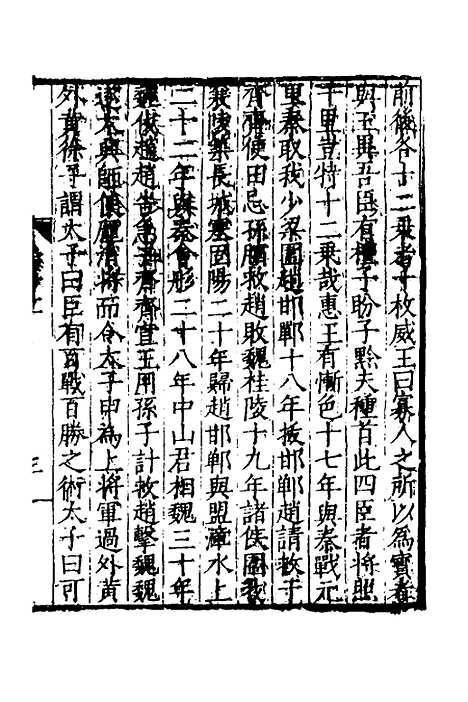 前後各十二乘者十枚威王曰寡人之所以為寶者
與王異吾臣有檀子盼子黔夫種首此四臣者將照
千里豈特十二乘哉惠王有慚色十七年與秦戰元
里秦取我少梁圍趙邯鄲十八年拔邯鄲趙請救于
齊齊使田忌孫臏救趙敗魏桂陵十九年諸侯圍我
襄陵築長城塞固陽二十年歸趙邯鄲與盟漳水上
二十二年與秦會彤二十八年中山君相魏三十年
魏伐趙趙告急于齊齊宣王用孫子計救趙擊魏魏
遂大興師使龐涓將而令太子申為上將軍過外黃
外黃徐子謂太子曰臣有百戰百勝之術太子曰可
三